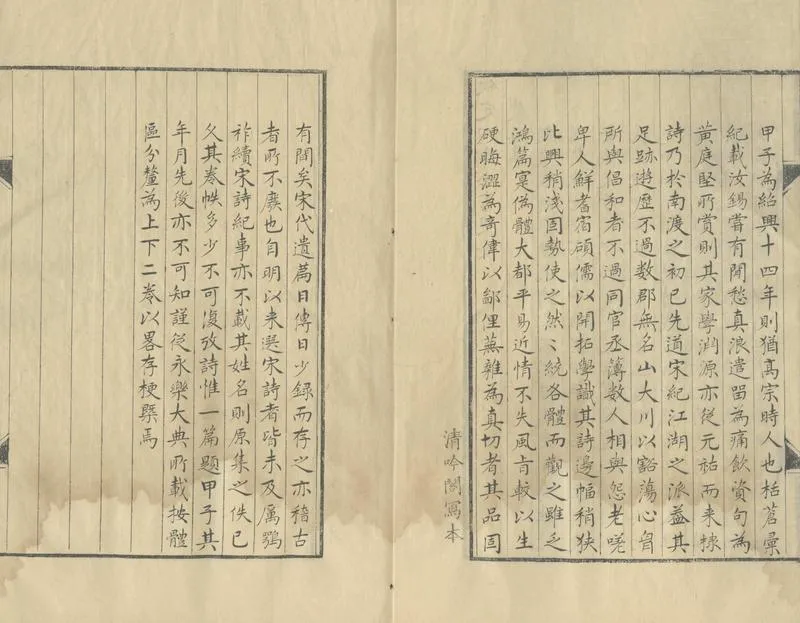 甲子為紹興十四年則猶髙宗時人也栝蒼彙
紀載汝錫嘗有閒愁真浪遣留為痛飲資句為
黄庭堅所賞則其家學淵源亦從元祐而来棣
詩乃於南渡之初已先道宋紀江湖之派葢其
足跡遊歴不過数郡無名山大川以豁蕩心胷
所與倡和者不過同官丞薄数人相與怨老嗟
卑人鮮耆宿碩儒以開拓學識其詩邊幅稍狹
比興稍淺固勢使之然〻統各體而觀之雖乏
鴻篇寔偽體大都平易近情不失風㫖較以生
硬晦澀為奇偉以鄙俚蕪雜為真切者其品固
清吟閣寫本
有閒矣宋代遺篇日傳日少録而存之亦稽古
者所不廢也自明以来選宋詩者皆未及厲鶚
祚續宋詩紀事亦不載其姓名則原集之佚已
久其卷帙多少不可復攷詩惟一篇題甲子其
年月先後亦不可知謹従永樂大典所載按體
區分釐為上下二卷以畧存梗槩焉